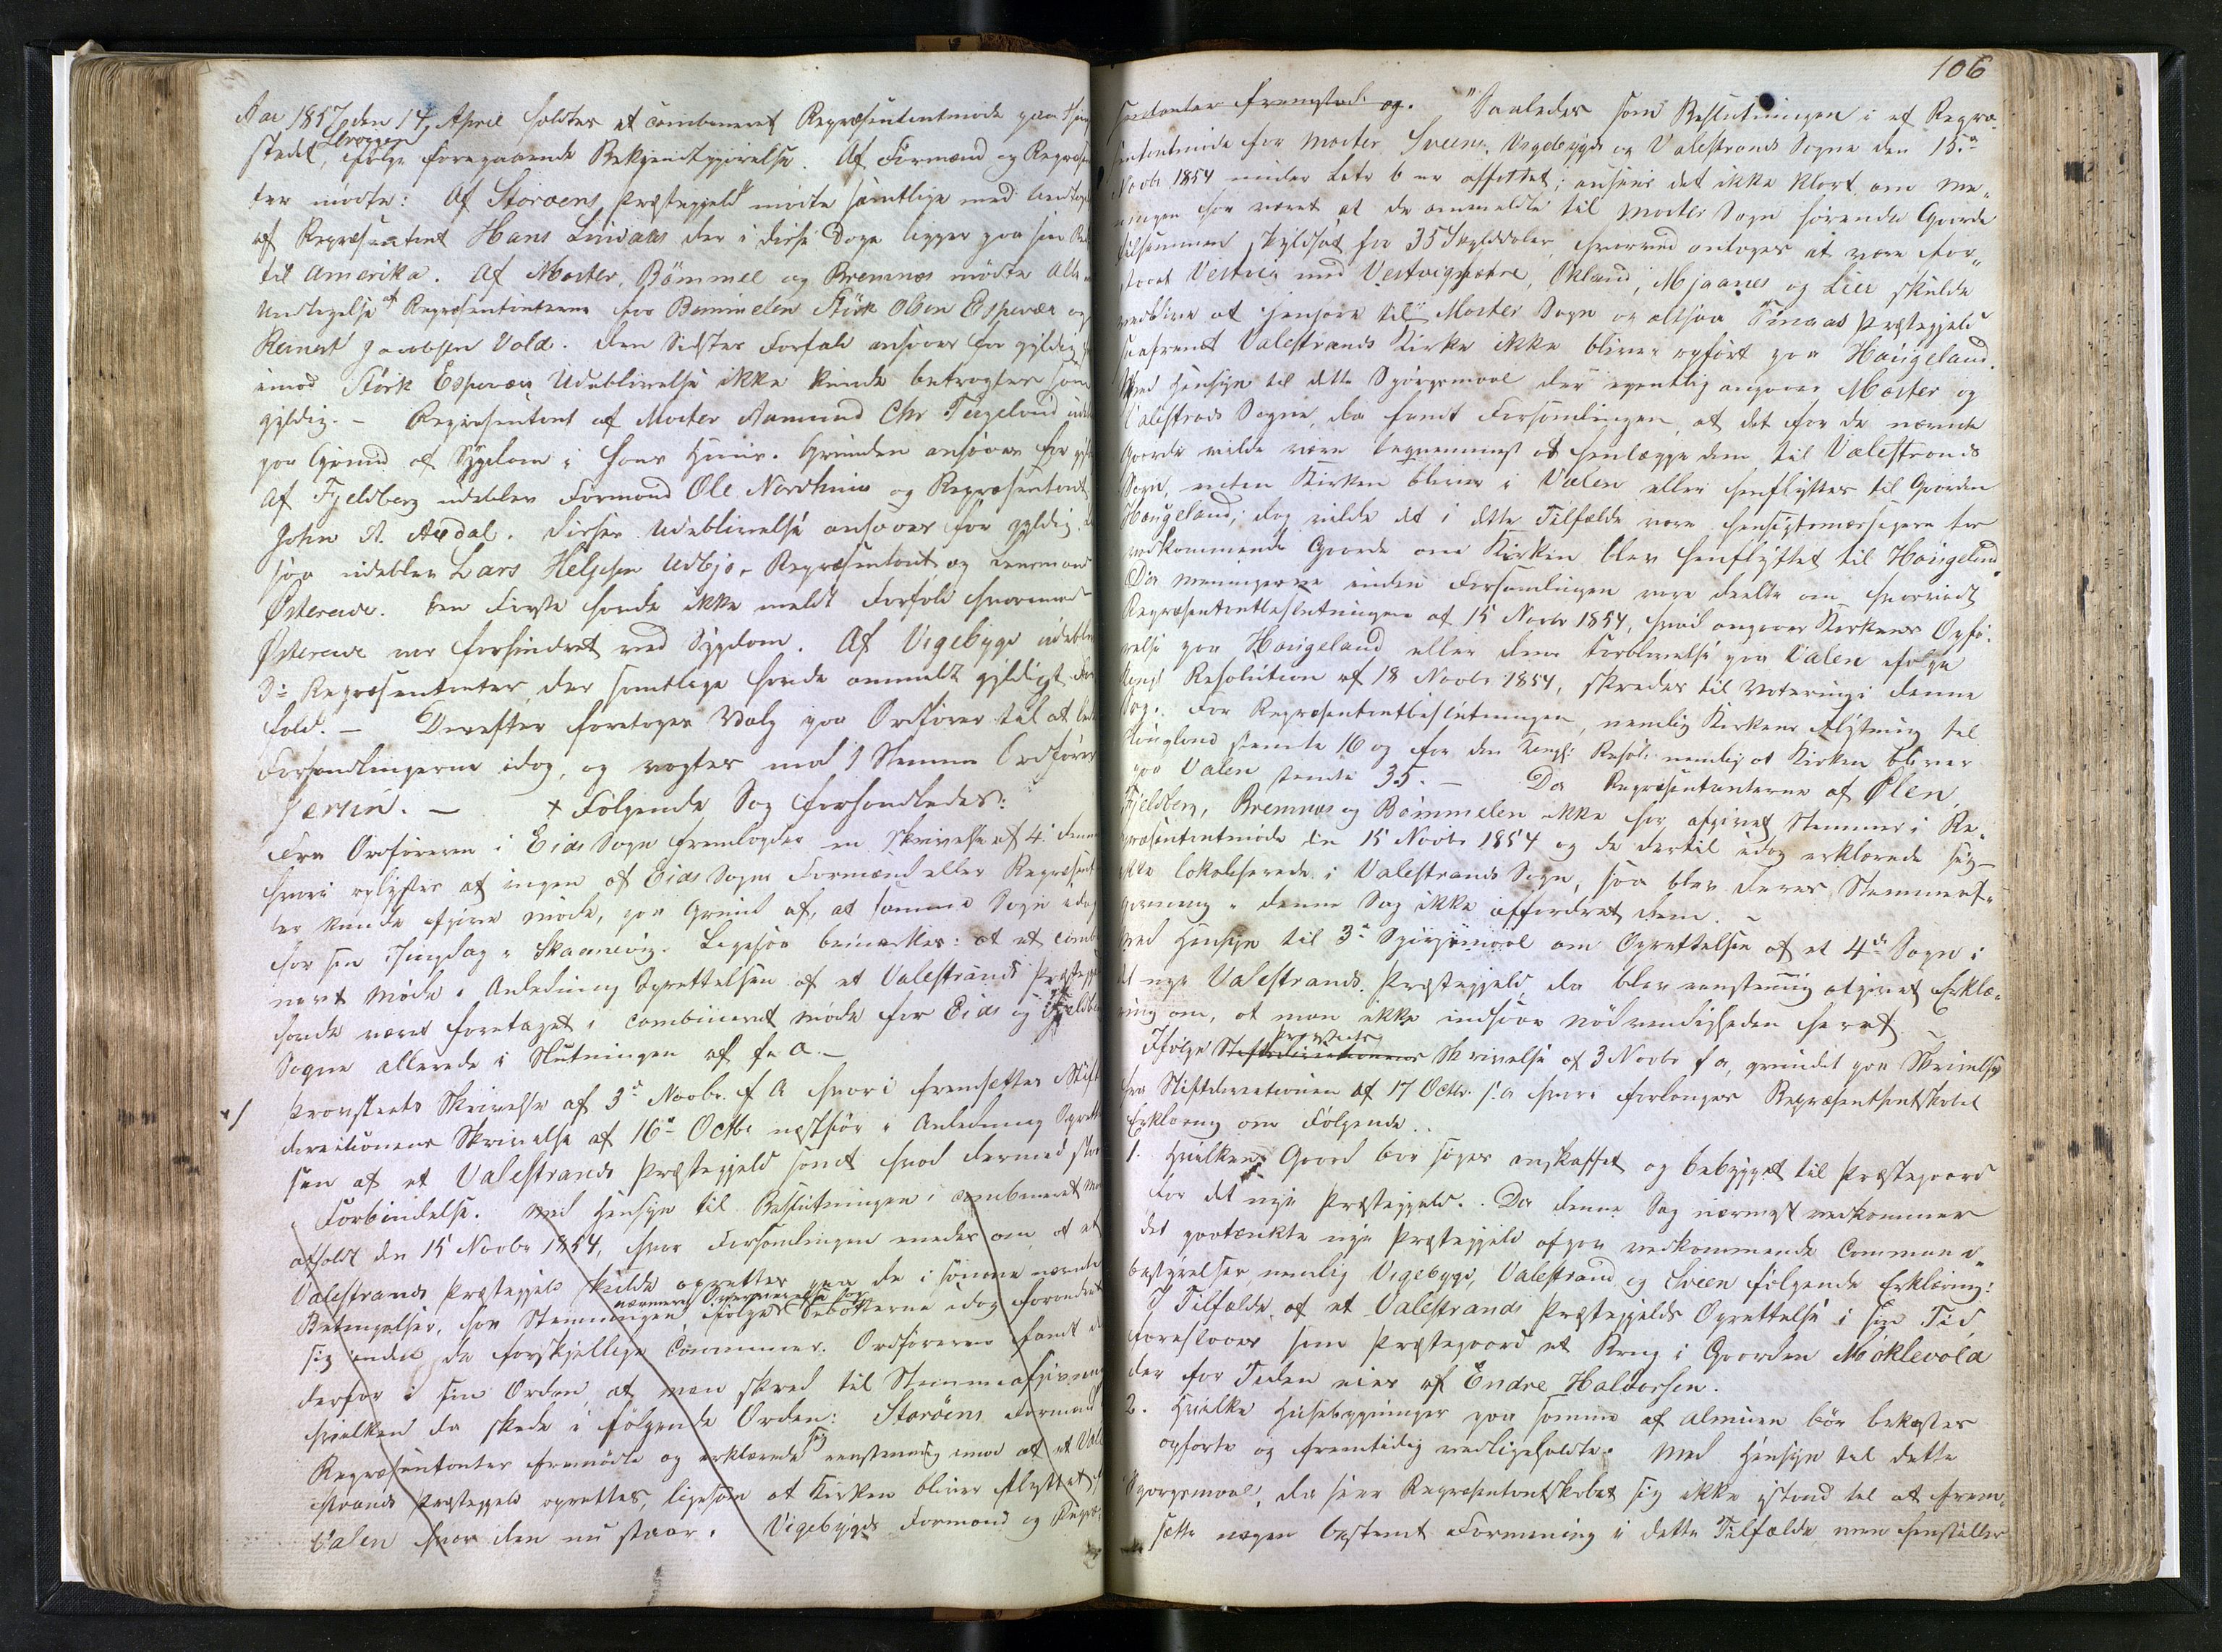 Aar 1857, den 17, April holdtes et combineret Repræsentantmøde paa Thing
stedet Storøyen, ifølge foregaaende Bekjendtgjørelse. Af Formænd og Repræsen
ter mødte: Af Storøens Præstegjeld mødte samtlige med Undtag
af Repræsentant Hans Lindaas der i disse Dage ligger paa sin Rei
til Amerika. Af Moster, Bömmel og Bremnæs mødte Alle
Undtagelse af Repræsentanterne for Bømmelen Størk Olsen Espevær og
Reinert Jacobsen Vold. Den Sidstes Forfald ansaaes for gyldig
imod Størk Espevær Udeblivelse ikke kunde betragtes som
gyldig. – Repræsentant af Moster Aamund Chr udeb
paa Grund af Sygdom i hans Huus. Grunden ansaaes for gyl
Af Fjeldberg udeblev Formand Ole Nordhuus og Repræsentant
John A. Axdal. Disses Udeblivelse ansaaes for gyldig.
saa udeblev Lars Helgesen Udbjo, Repræsentant og Lensmand
Østereide. Den Første havde ikke meldt Forfald hvorimod
Østereide var forhindret ved Sygdom. Af Vigebygd udeble
3de Repræsentanter der samtlige havde anmeldt gyldigt For
fald. – Derefter foretoges Valg paa Ordfører til at lede
Forhandlingerne idag, og valgtes med Stemmer Ordfører
Jersin. – + Følgende Sag forhandledes:
Fra Ordføreren i Eids Sogn fremlagdes en Skrivelse af 4 denne
hvori oplystes at ingen af Eids Sogns Formænd eller Repræsent
ter kunde afgive møde, paa Grund af, at samme Sogn idag
har sin Thingdag i Skaanevig. Ligesaa bemærkes: at et combi
neret Møde i Anledning Oprettelsen af et Valestrands Præstegje
havde været foretaget i combineret møde for Eids og Fjeldber
Sogne allerede i Slutningen af f. A. –
Provstens Skrivelse af 3de Novbr. f A hvori fremsattes Stift
directionens Skrivelse af 16de Octbr næstfør i Anledning Oprett
sen af et Valestrands Præstegjeld samt hvad dermed staar
i Forbindelse. Med Hensyn til Beslutningen i combineret Mø
afholdt den 15 Novbr 1854, hvor Forsamlingen enedes om at et
Valestrands Præstegjeld skulde oprettes paa de i samme nævnte
Betingelser, har Stemningen ifølge nærmere Overveielse for Debatterne idag forandret
sig inden de forskjellige Communer. Ordføreren fandt d
derfor i sin Orden, at man skred til Stemmeafgivning
hvilken da skede i følgende Orden: Storøens Formænd
Repræsentanter fremmødte og erklærede sig eenstemmig imod at et Vale
strands Præstegjeld oprettes, ligesom at Kirken bliver flyttet
Valen hvor den nu staar. Vigebygds Formænd og Repræ-
106
sentanter fremstod og. "Saaledes som Beslutningen i et Repræ-
sentantmøde for Moster, Sveens, Vigebygds og Valestrands Sogne den 15de
Novbr 1854 under Litr b er affattet; ansees det ikke klart om Me-
ningen har været at de anmeldte til Moster Sogn hørende Gaarde
tilsammen skyldsat for 35 Skylddaler, hvorved antages at være for-
staaet Vestvig med Vestvigsætre, Økland, Mjaanes og Lier skulde
vedblive at henhøre til Moster Sogn og altsaa Finaas Præstegjeld
saafremt Valestrands Kirke ikke bliver opført paa Haugeland.
Med Hensyn til dette Spørgsmaal der egentlig angaaer Moster og
Valestrads Sogne, da fandt Forsamlingen, at det for de nævnte
Gaarde vilde være beqvemmest at henlægge dem til Valestrands
Sogn, enten Kirken bliver i Valen eller henflyttes til Gaarden
Haugeland; dog vilde det i dette Tilfælde være hensigtsmæssigere for
vedkommende Gaarde om Kirken blev henflyttet til Haugeland.
Da Meningerne inden Forsamlingen vare deelte om hvorvidt
Repræsentantbeslutningen af 15 Novbr 1854, hvad angaaer Kirkens Opfø-
relse paa Haugeland eller dens Forblivelse paa Valen ifølge
Kongl Resolution af 18 Novbr 1854, skredes til Votering i denne
Sag. For Repræsentantbeslutningen, nemlig Kirkens Flytning til
Haugland stemte 16 og for den Kongl: Resol: nemlig at Kirken bliver
paa Valen stemte 35. – Da Repræsentanterne af Ølen,
Fjeldberg, Bremnæs og Bömmelen ikke har afgivet Stemmer i Re-
præsentantmøde den 15 Novbr 1854 og de dertil idag erklærede sig
ikke lokaliserede i Valestrands Sogn, saa blev deres Stemmeaf-
givning i denne Sag ikke affordret dem. –
Med Hensyn til 3de Spørgsmaal om Oprettelsen af et 4de Sogn i
det nye Valestrands Præstegjeld, da blev eenstemmig afgivet Erklæ-
ring om, at man ikke indsaae Nødvendigheden heraf. –
Ifølge Stiftsdirectionens Provstens Skrivelse af 3 Novbr f a, grundet paa Skrivelse
fra Stiftdirectionen af 17 Octbr. f. a hvori forlanges Repræsentantskabets
Erklæring om Følgende.
1. Hvilken Gaard bør søges anskaffet og bebygget til Præstegaard
for det nye Præstegjeld. Da denne Sag nærmest vedkommer
det paatænkte nye Præstegjeld afgav vedkommende Commune-
bestyrelser nemlig Vigebygd, Valestrand og Sveen følgende Erklæring:
I Tilfælde af et Valestrands Præstegjelds Oprettelse i sin Tid
foreslaaes som Præstegaard et Brug i Gaarden Møklevold
der for Tiden eies af Endre Haldorsen.
2. Hvilke Huusebygninger paa samme af Almuen bør bekostes
opførte og fremtidig vedligeholdte. Med Hensyn til dette
Spørgsmaal, da seer Repræsentantskabet sig ikke istand til at frem-
sætte nogen bestemt Formening i dette Tilfælde men henstiller